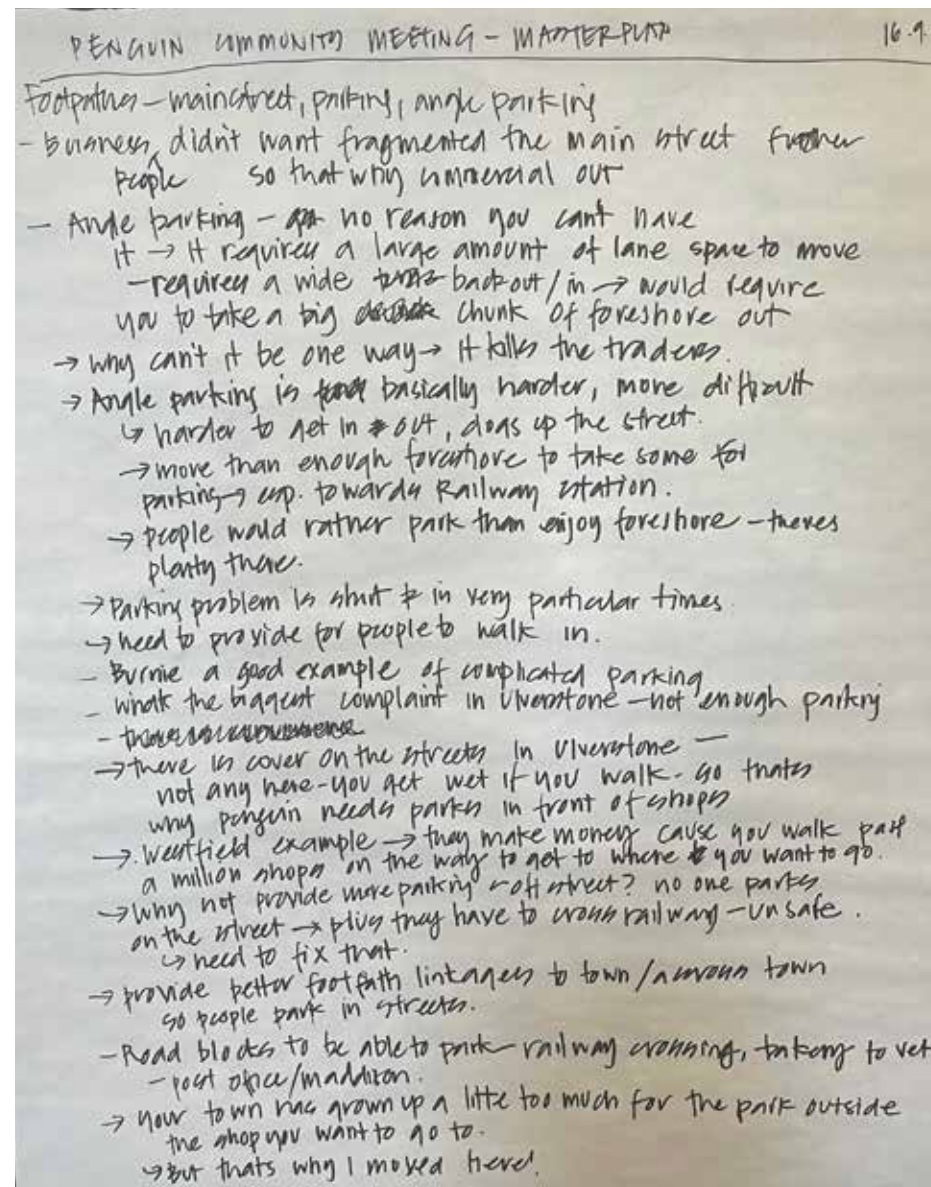 PENGUIN COMMUNITY MEETING - MASTERPLAN 16.9
Footpaths - mainstreet, parking, angle parking
- Business, didn't want fragmented the main street further
people so that why commercial out
- Angle parking - no reason you can't have
it → it requires a large amount of lane space to move
- requires a wide back out/in → would require
you to take a big chunk of foreshore out
→ why can't it be one way → it kills the traders.
→ Angle parking is basically harder, more difficult
↳ harder to get in + out, clogs up the street.
→ more than enough foreshore to take some for
parking → esp. towards Railway station.
→ people would rather park than enjoy foreshore - theres
plenty there.
→ Parking problem is short & in very particular times.
→ need to provide for people to walk in.
- Burnie a good example of complicated parking
- whats the biggest complaint in Ulverstone - not enough parking
-
→ there is cover on the streets in Ulverstone -
not any here - you get wet if you walk - so thats
why penguin needs parks in front of shops
→ Westfield example → they make money cause you walk past
a million shops on the way to get to where you want to go.
→ Why not provide more parking off street? no one parks
on the street → plus they have to cross railway - unsafe.
↳ need to fix that.
→ provide better footpath linkages to town / around town
so people park in streets.
- Road blocks to be able to park - railway crossing, to vet
- post office/maddison.
→ your town has grown up a little too much for the park outside
the shop you want to go to.
↳ But thats why I moved here!